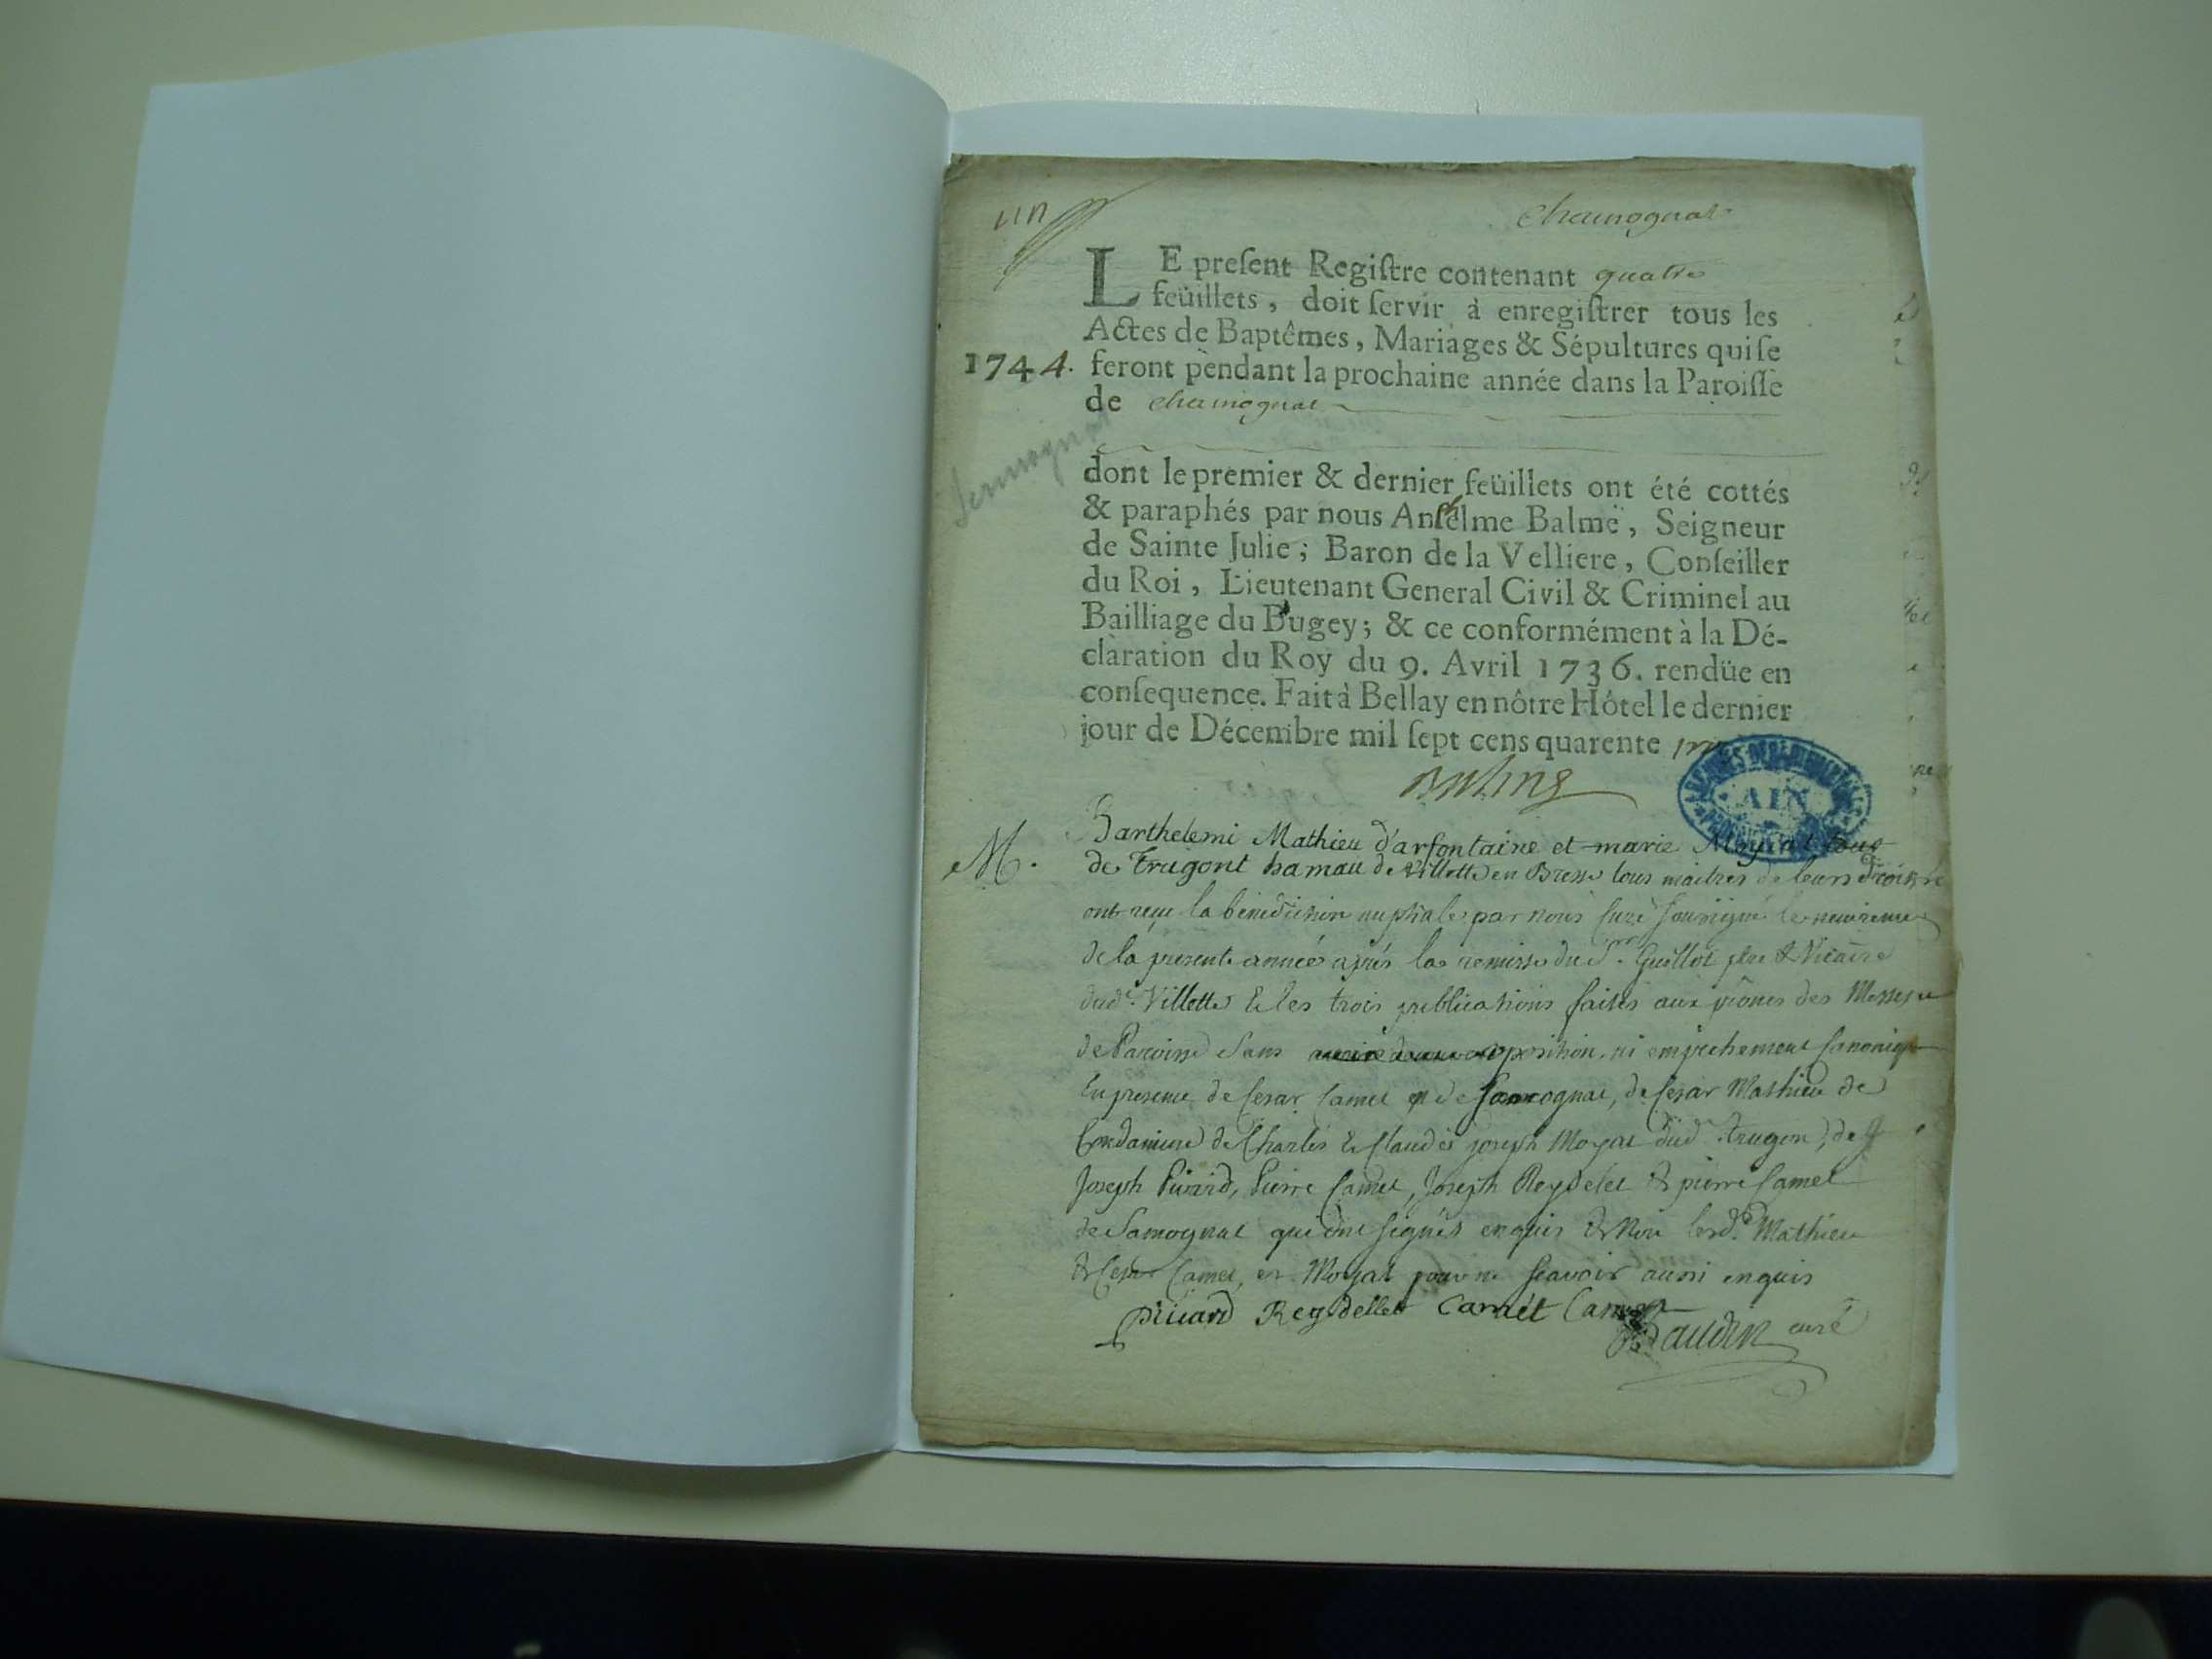 un
Chamognat
LE preſent Regiſtre contenant quatre
feüillets, doit ſervir à enregiſtrer tous les
Actes de Baptêmes, Mariages & Sépultures qui ſe
1744. feront pendant la prochaine année dans la Paroiſſe
de chamognat
Samognat
dont le premier & dernier feüillets ont été cottés
& paraphés par nous Anthelme Balme, Seigneur
de Sainte Julie; Baron de la Velliere, Conſeiller
du Roi, Lieutenant General Civil & Criminel au
Bailliage du Bugey; & ce conformément à la Dé-
claration du Roy du 9. Avril 1736. rendüe en
conſequence. Fait à Bellay en nôtre Hôtel le dernier
jour de Décembre mil ſept cens quarente
Balme
ARCHIVES DEPARTEMENTALES
AIN
M. Barthelemi Mathieu d'arfontaine et marie Moyat tous
de Trugont hamau de Villette en Bresse tous maitres de leurs droits
ont reçu la bénédiction nuptiale par nous Curé soussigné le
de la presente année après la remisse du Sr Guillot ptre & Vicaire
dud. Villette & les trois publications faites aux prônes des Messes
de Paroisse sans opposition, ni empechement Canonique
En presence de Cesar Camet de Samognat, de Cesar Mathieu de
Condamine de Charles & Claude joseph Moyat dud trugon, de
Joseph Picard, Pierre Camet, Joseph Reydelet & pierre Camet
de Samognat qui ont signés enquis & Non lesd. Mathieu
& Cesar Camet, et Moyat pour ne sçavoir aussi enquis
picard Reydellet Camet Camet
Baudin curé